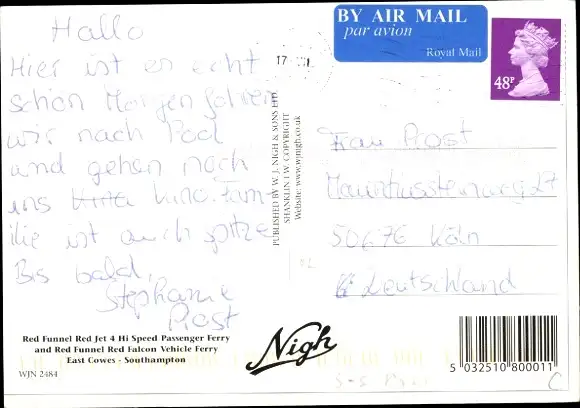 Hallo
Hier ist es echt
schön Morgen fahren
wir nach Pool
und gehen noch
ins Kino. Fam-
ilie ist auch spitze
Bis bald,
Stephanie
Prost
Red Funnel Red Jet 4 Hi Speed Passenger Ferry
and Red Funnel Red Falcon Vehicle Ferry
East Cowes - Southampton
WJN 2484
PUBLISHED BY W. J. NIGH & SONS LTD
SHANKLIN I.W. COPYRIGHT
Website: www.wjnigh.co.uk
Nigh
BY AIR MAIL
par avion
Royal Mail
48P
17
Frau Prost
27
50676 Köln
Deutschland
5 032510 800011
C